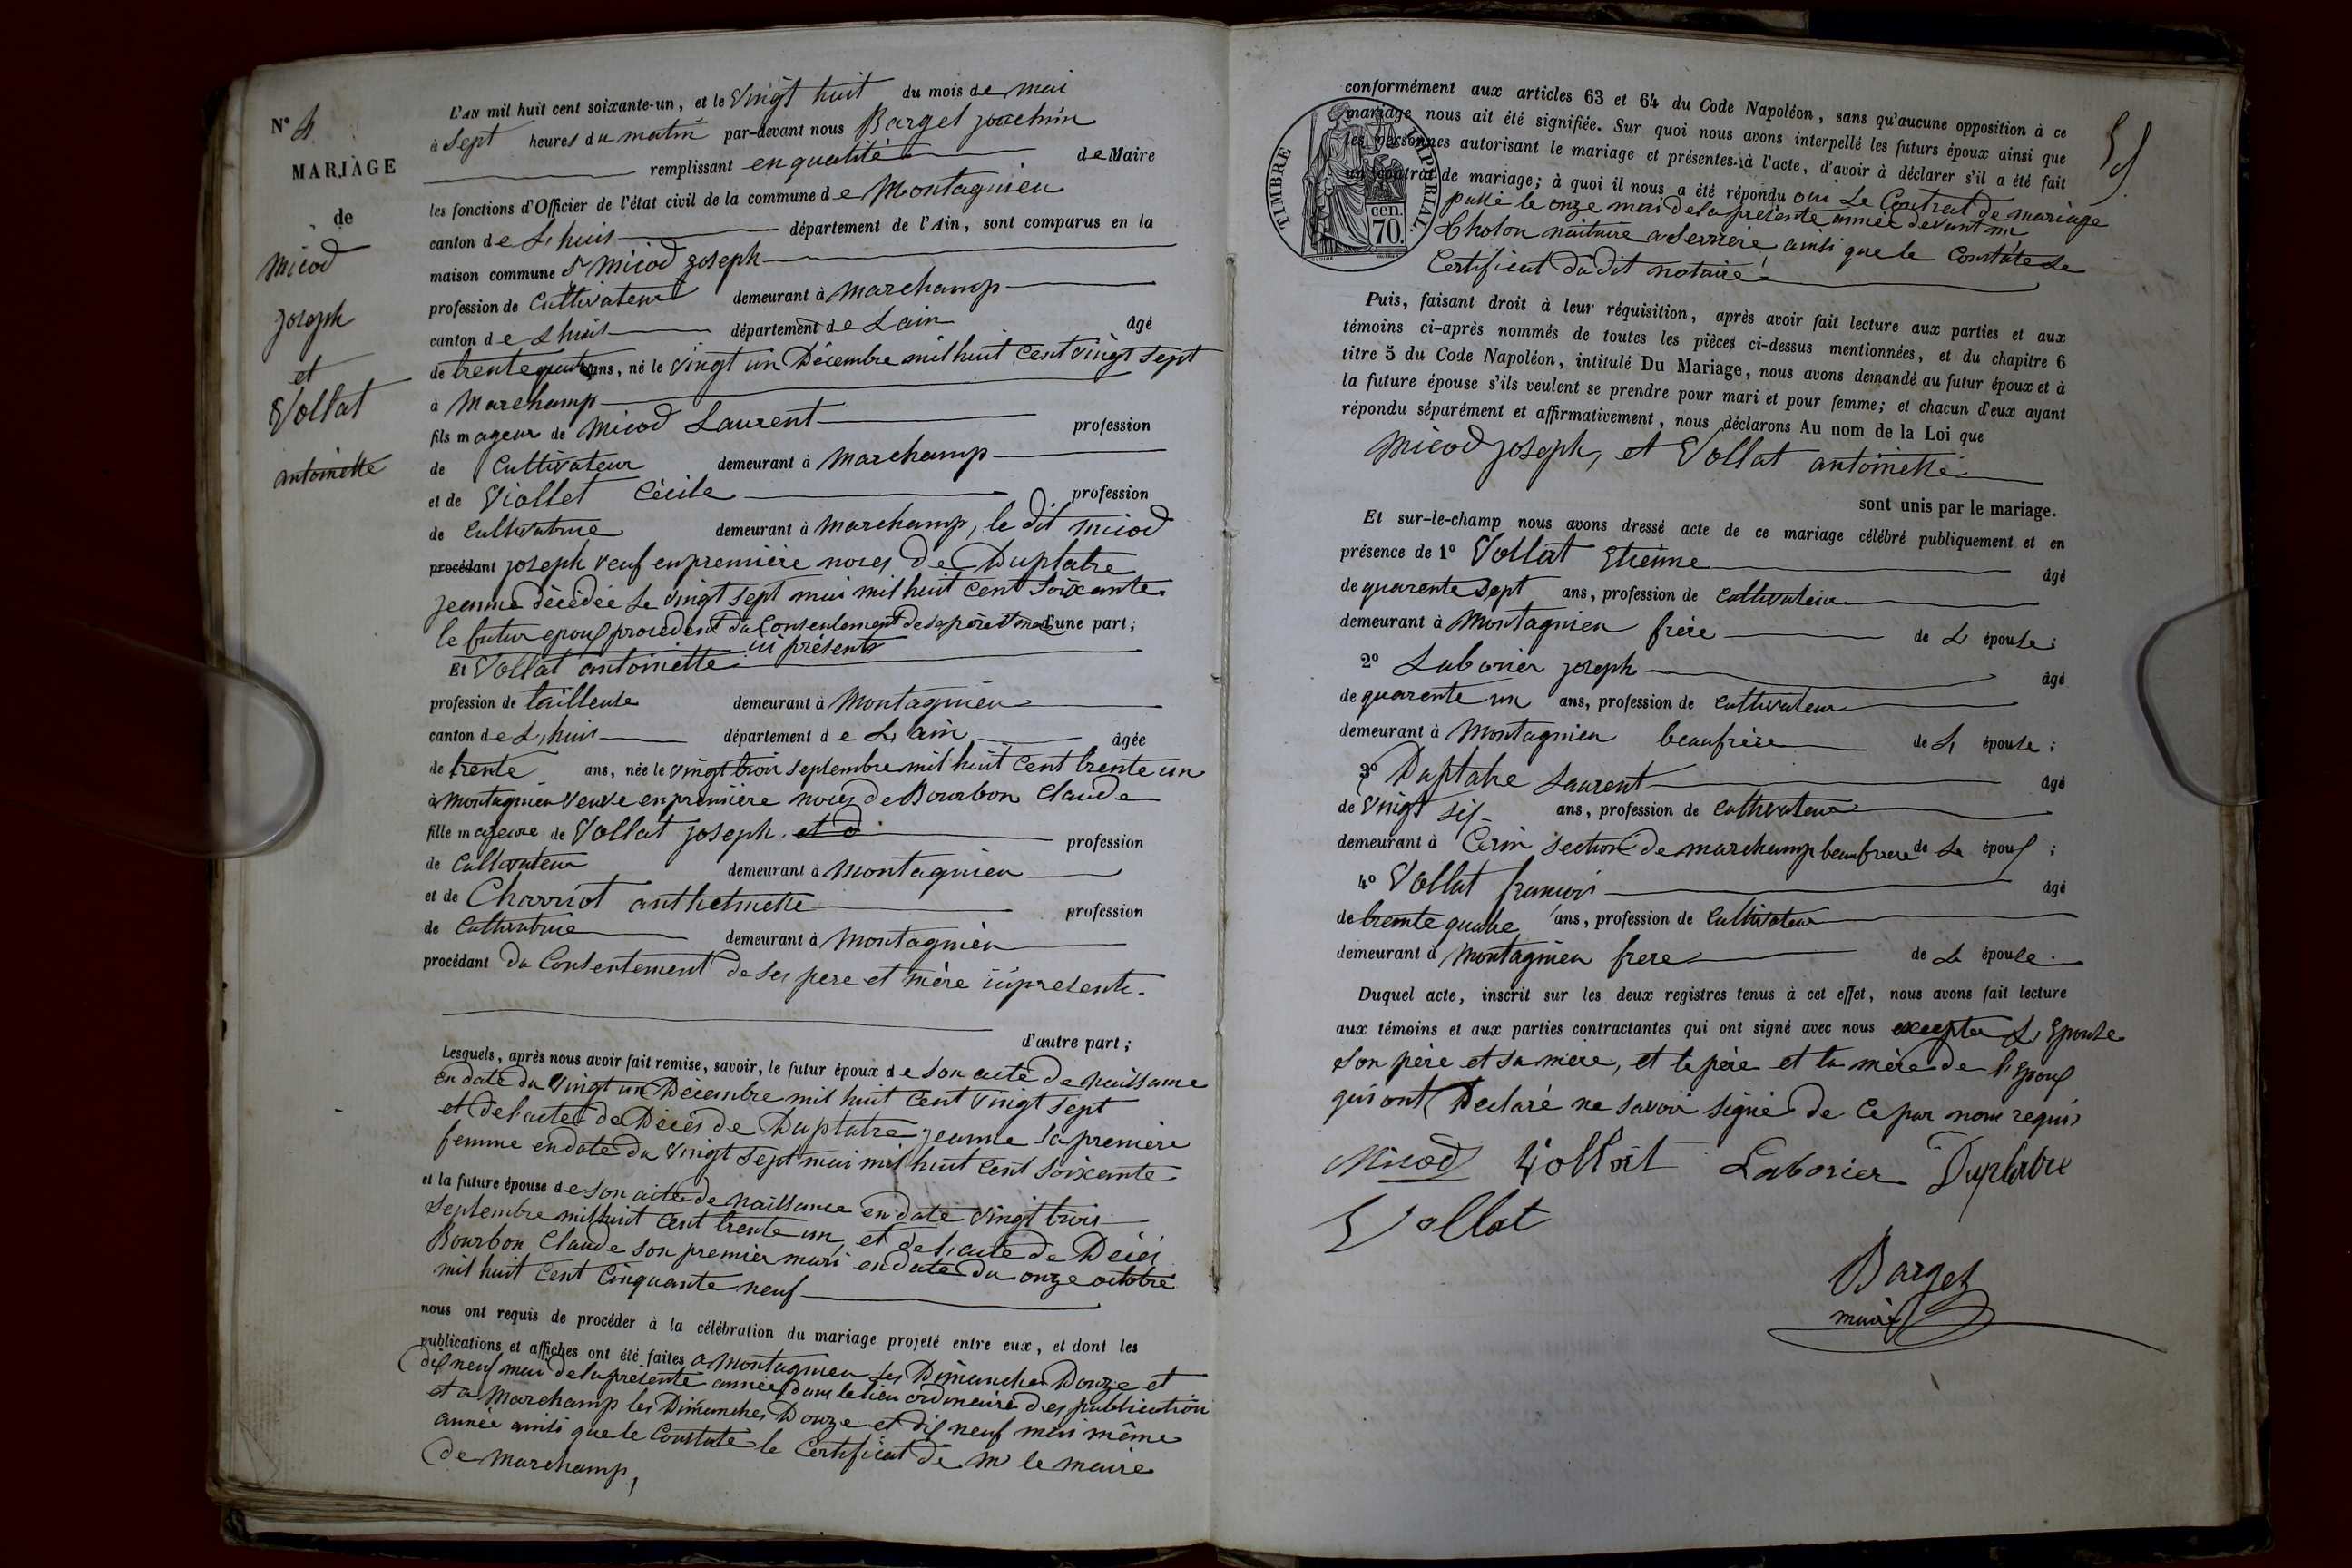 N° 4
MARIAGE
de
Micod
joseph
et
Vollat
antoinette
L'AN mil huit cent soixante-un, et le Vingt huit du mois de mai
à Sept heures du matin par-devant nous Barget joachim
remplissant en qualité de Maire
les fonctions d'Officier de l'état civil de la commune de Montagnieu
canton de L,huis département de l'Ain, sont comparus en la
maison commune Sr Micod joseph
profession de Cultivateur demeurant à Marchamp
canton de L huis département de Lain âgé
de trente quatre ans, né le Vingt un Décembre mil huit Cent Vingt Sept
à Marchamp
fils mageur de Micod Laurent profession
de Cultivateur demeurant à Marchamp
et de Viollet Cécile profession
de Cultivatrice demeurant à Marchamp, le dit Micod
procédant joseph Veuf en première noces De Duplatre
jeanne décédée le Vingt sept mai mil huit Cent Soixante
le futur epoux procédent du Consentement de ses père et mère d'une part;
ici présents
Et Vollat antoinette
profession de tailleuse demeurant à Montagnieu
canton de L,huis département de L,ain âgée
de trente ans, née le Vingt trois Septembre mil huit Cent trente un
à Montagnieu Veuve en première noces de Bourbon Claude
fille majeure de Vollat joseph et d profession
de Cultivateur demeurant à Montagnieu
et de Charriot anthelmette profession
de Cultivatrice demeurant à Montagnieu
procédant du Consentement de ses pere et mère ici présents.
d'autre part;
Lesquels, après nous avoir fait remise, savoir, le futur époux de son acte de naissance
en date du Vingt un Décembre mil huit Cent Vingt Sept
et de l'acte de Décès de Duplatre jeanne sa première
femme en date du Vingt Sept mai mil huit Cent Soixante
et la future épouse de son acte de naissance en date Vingt trois
Septembre mil huit Cent trente un, et de l,acte de Décès
Bourbon Claude son premier mari en date du onze octobre
mil huit Cent Cinquante neuf
nous ont requis de procéder à la célébration du mariage projeté entre eux, et dont les
publications et affiches ont été faites a Montagnieu les Dimanches Douze et
dix neuf mai de la présente année dans le lieu ordinaire des publication
et a Marchamp les Dimanches Douze et dix neuf mai même
année ainsi que le Constate le Certificat de Mr le maire
de Marchamp,
conformément aux articles 63 et 64 du Code Napoléon, sans qu'aucune opposition à ce
mariage nous ait été signifiée. Sur quoi nous avons interpellé les futurs époux ainsi que
les personnes autorisant le mariage et présentes à l'acte, d'avoir à déclarer s'il a été fait
un contrat de mariage; à quoi il nous a été répondu oui Le Contrat de mariage
passé le onze mai de la présente année devant
Cholon à Serrière ainsi que le Constate le
Certificat du dit notaire
TIMBRE IMPERIAL
cen.
70.
Puis, faisant droit à leur réquisition, après avoir fait lecture aux parties et aux
témoins ci-après nommés de toutes les pièces ci-dessus mentionnées, et du chapitre 6
titre 5 du Code Napoléon, intitulé Du Mariage, nous avons demandé au futur époux et à
la future épouse s'ils veulent se prendre pour mari et pour femme; et chacun d'eux ayant
répondu séparément et affirmativement, nous déclarons Au nom de la Loi que
Micod joseph, et Vollat antoinette
sont unis par le mariage.
Et sur-le-champ nous avons dressé acte de ce mariage célébré publiquement et en
présence de 1° Vollat Etienne âgé
de quarente Sept ans, profession de Cultivateur
demeurant à Montagnieu frère de L épouse;
2° Laborier joseph âgé
de quarente un ans, profession de Cultivateur
demeurant à Montagnieu beaufrère de L, épouse;
3° Duplatre Laurent âgé
de Vingt six ans, profession de Cultivateur
demeurant à Cerin Section de Marchamp beaufrere de Le époux;
4° Vollat francois âgé
de trente quatre ans, profession de Cultivateur
demeurant à Montagnieu frere de L épouse.
Duquel acte, inscrit sur les deux registres tenus à cet effet, nous avons fait lecture
aux témoins et aux parties contractantes qui ont signé avec nous excepter L Epouse
Son père et sa mère, et le père et la mère de l'Epoux
qui ont Declaré ne Savoir signé de Ce par nous requis
Micod Vollat Laborier Duplatre
Vollat
Barget
maire